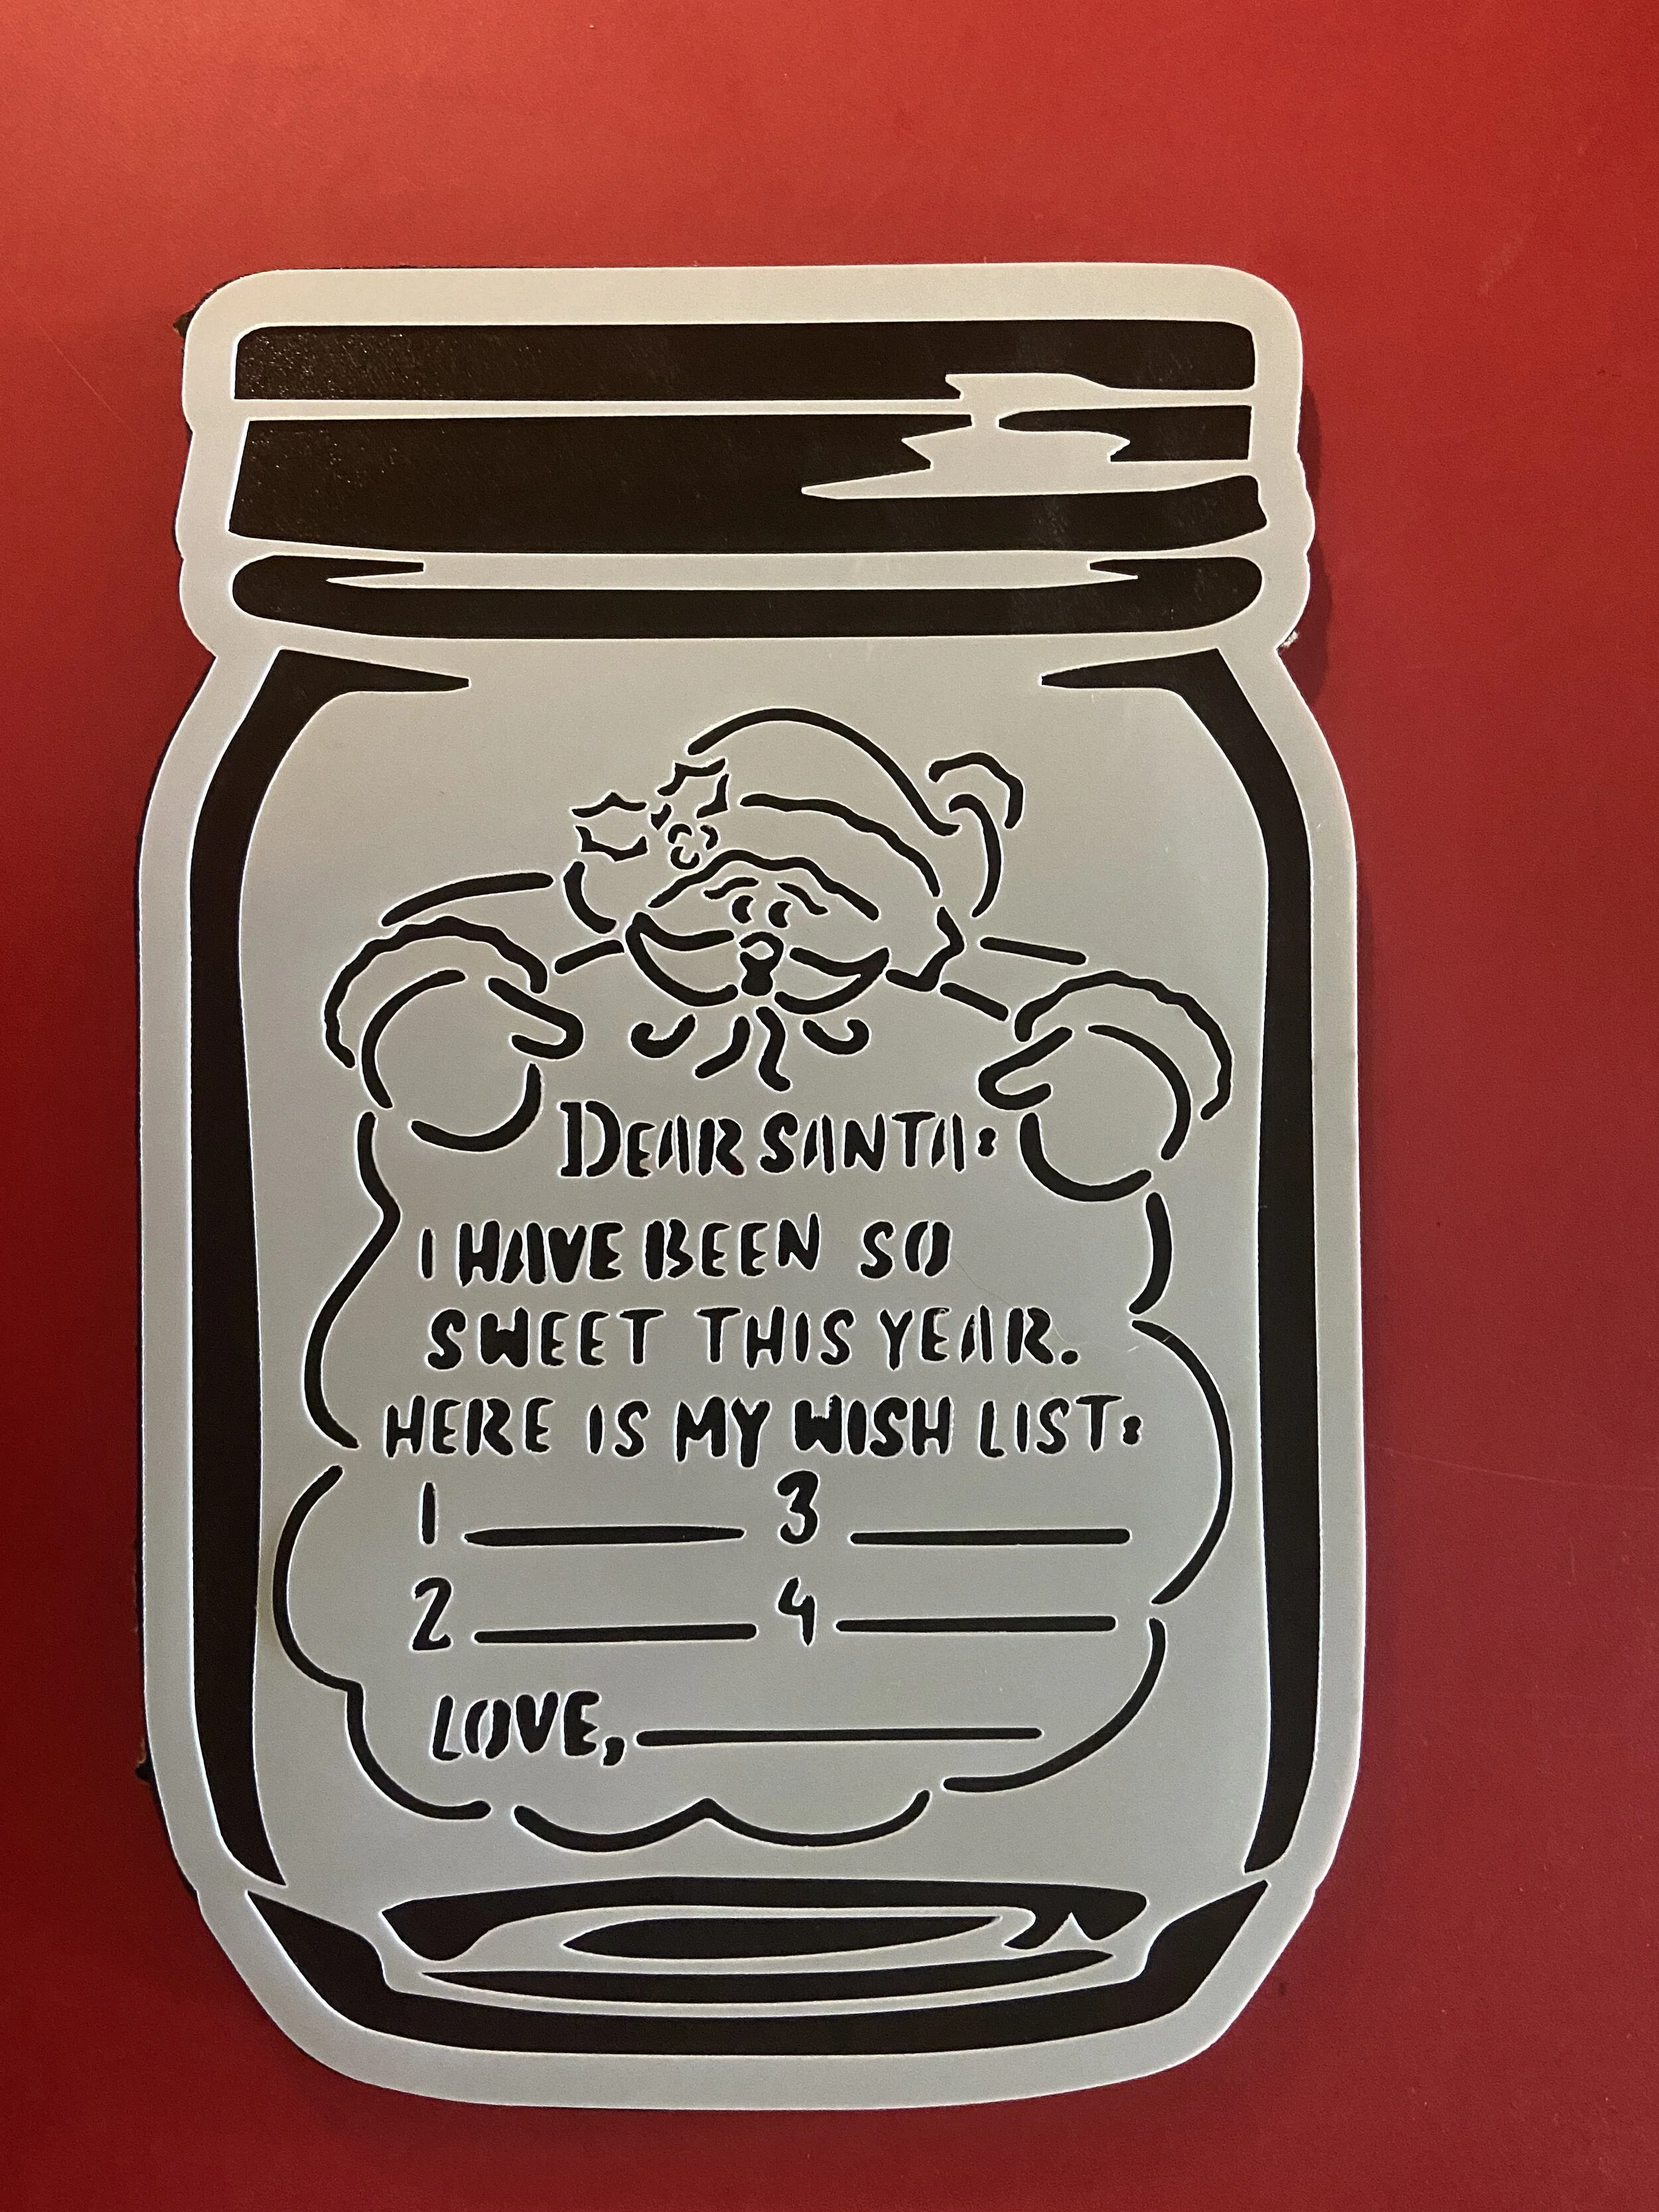 DEAR SANTA:
I HAVE BEEN SO
SWEET THIS YEAR.
HERE IS MY WISH LIST:
1  3
2 4
LOVE,